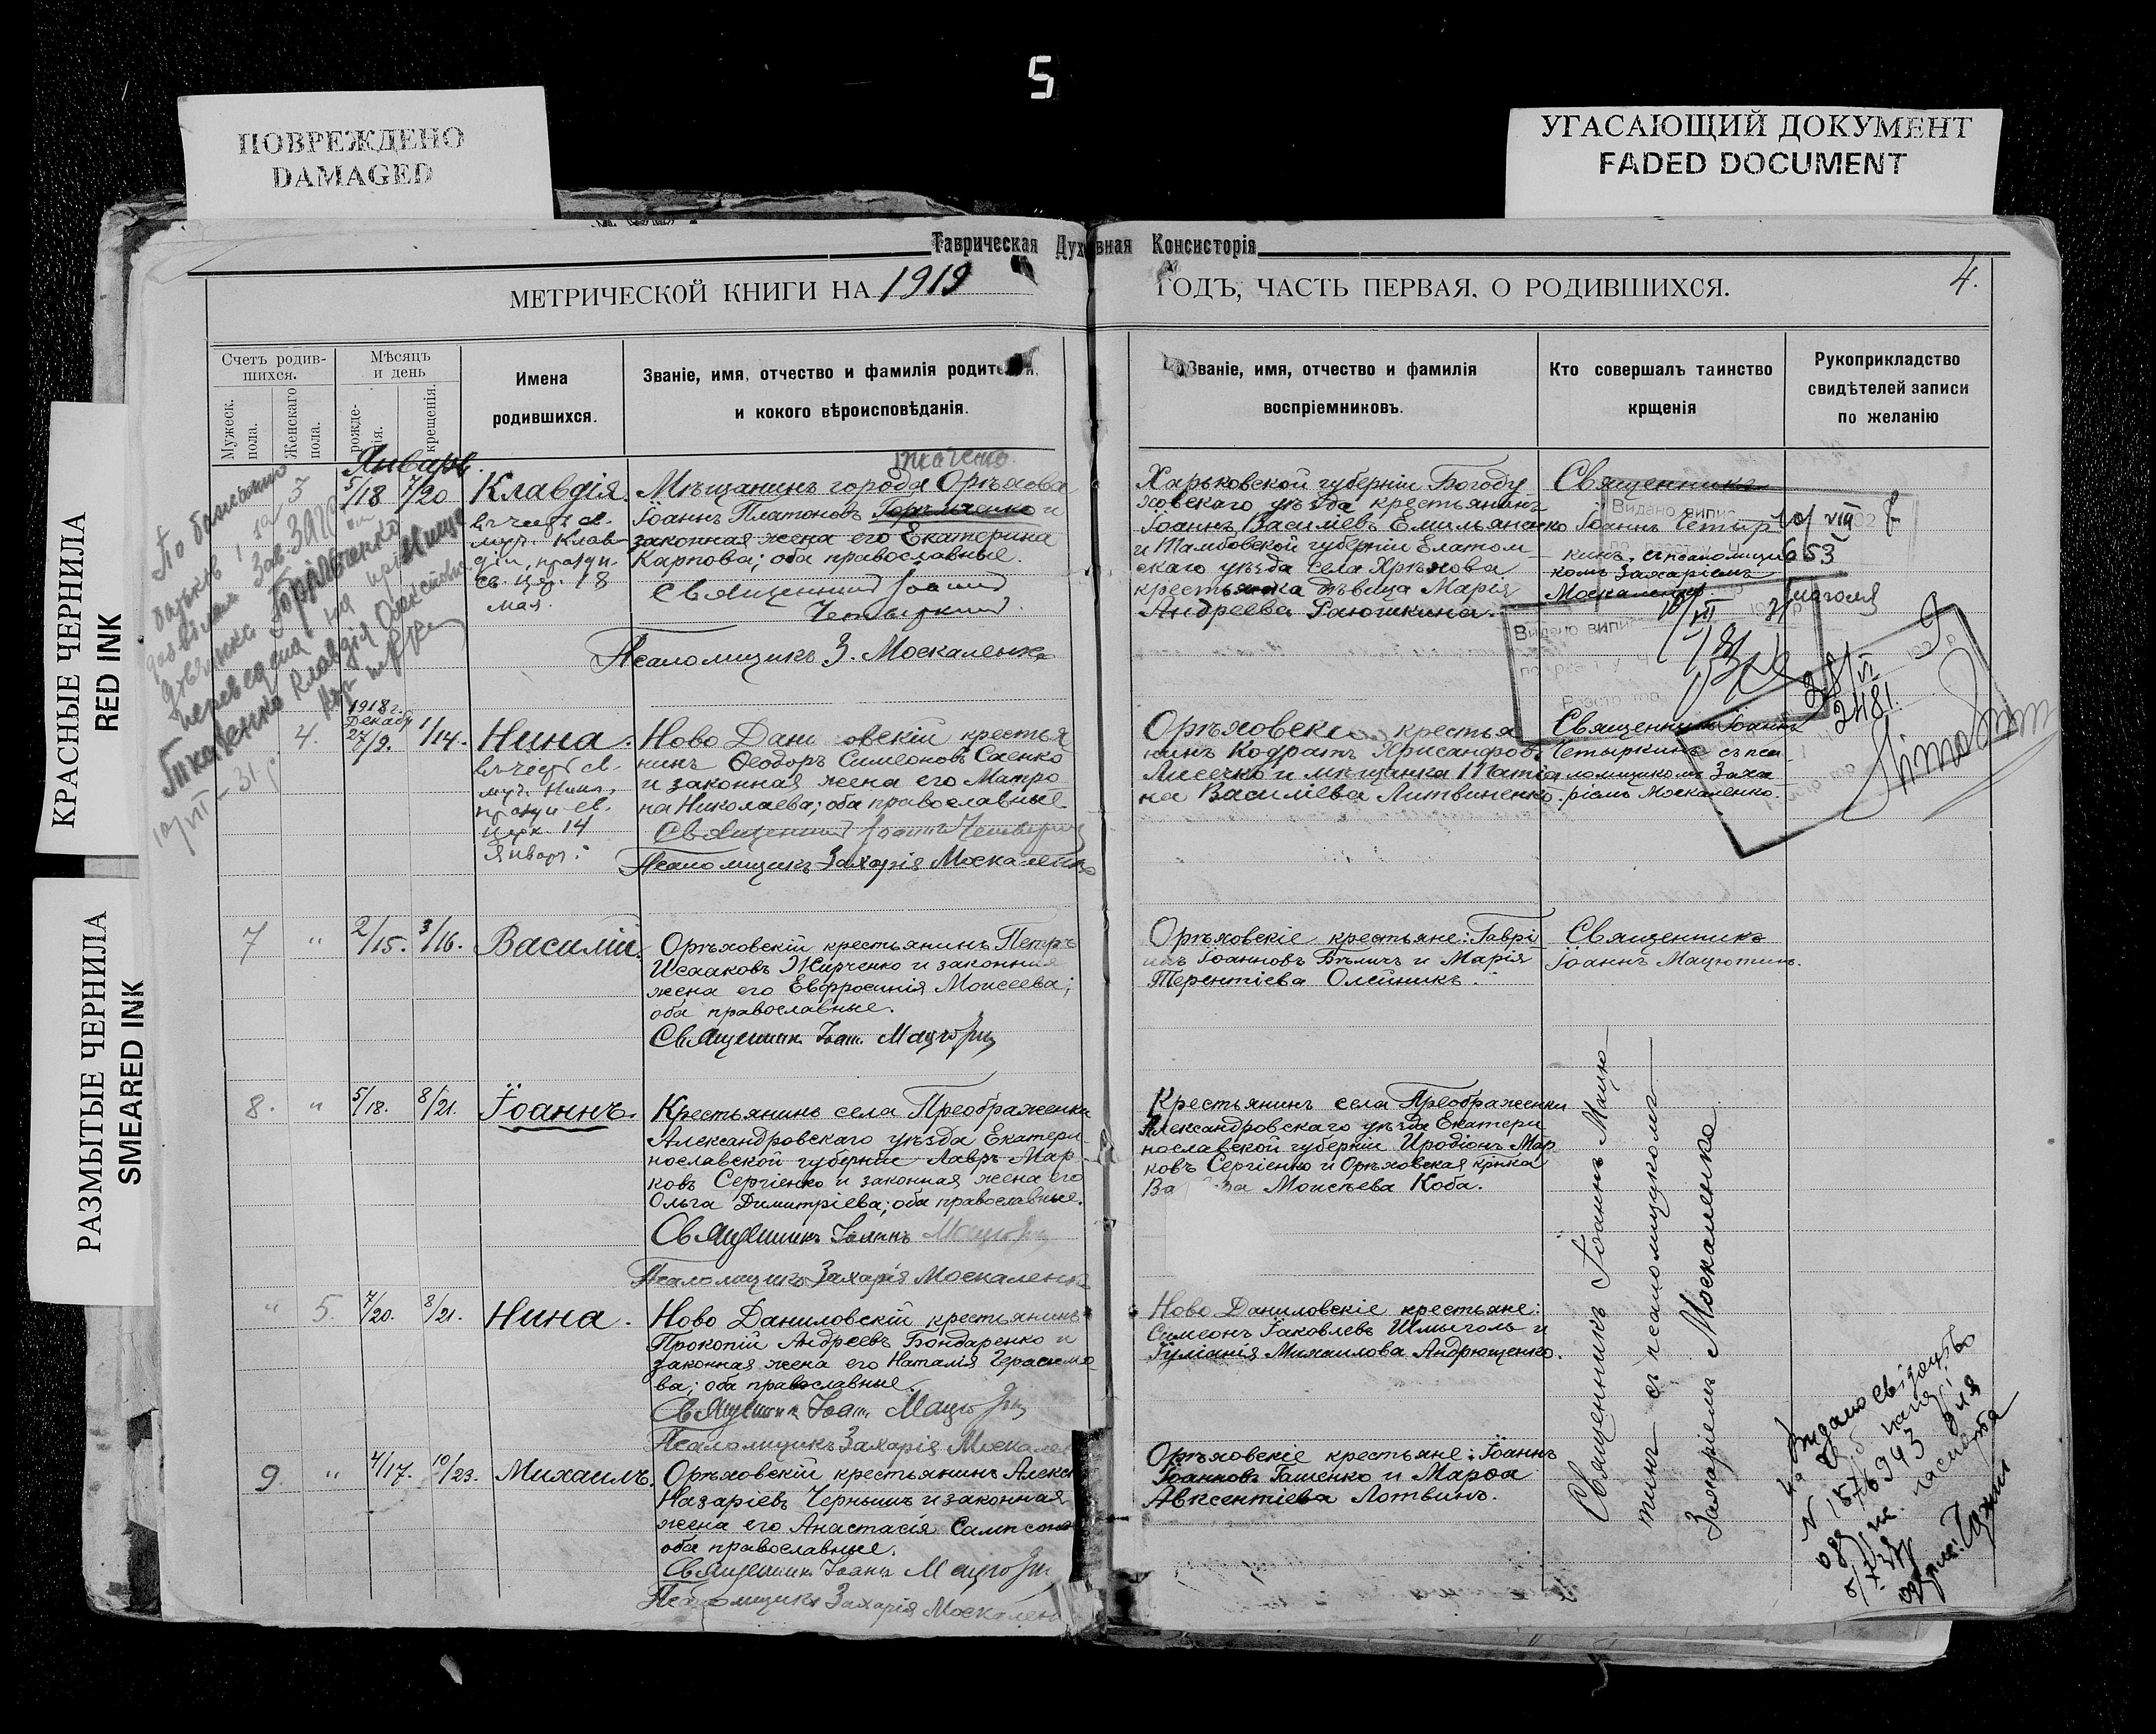 5
ПОВРЕЖДЕНО
DAMAGED
УГАСАЮЩИЙ ДОКУМЕНТ
FADED DOCUMENT
КРАСНЫЕ ЧЕРНИЛА
RED INK
РАЗМЫТЫЕ ЧЕРНИЛА
SMEARED INK
Таврическая Духовная Консисторія
МЕТРИЧЕСКОЙ КНИГИ НА 1919
ГОДЪ, ЧАСТЬ ПЕРВАЯ, О РОДИВШИХСЯ.
4.
Счетъ родив-
шихся.
Мужеск.
пола.
Женскаго
пола.
Мѣсяцъ
и день
рожде-
нія.
крещенія.
Имена
родившихся.
Званіе, имя, отчество и фамилія родителей,
и кокого вѣроисповѣданія.
Званіе, имя, отчество и фамилія
воспріемниковъ.
Кто совершалъ таинство
крщенія
Рукоприкладство
свидѣтелей записи
по желанію
Январь.
3
5/18 7/20
Клавдія.
въ честь св.
муч. Клав
діи, праздн.
св. цер. 18
мая.
Ткаченко
Мѣщанинъ города Орѣхова
Іоаннъ Платоновъ и
законная жена его Екатерина
Карпова; оба православные.
Священникъ Іоаннъ
Четыркинъ.
Псаломщикъ З. Москаленко
Харьковской губерніи Богоду
ховскаго уѣзда крестьянинъ
Іоаннъ Василіевъ Емильяненко
и Тамбовской губерніи Елатом
скаго уѣзда села Хрѣнова
крестьянка дѣвица Марія
Андреева Раюшкина.
Священникъ
Іоаннъ Четыр
кинъ съ псаломщи
комъ Захаріемъ
Москаленко.
Видано випис
653
Видано випис
4.
1918 г.
Декабр
27/9. 1/14.
Нина.
въ честь св.
муч. Нины,
праздн. св.
церк. 14
Январ.
Ново Дани овскій крестья
нинъ Ѳеодоръ Симеоновъ Саенко
и законная жена его Матро
на Николаева; оба православные
Священникъ Іоаннъ Четыркинъ
Псаломщикъ Захарія Москаленко
Орѣховскі крестья
нинъ Кодратъ Хрисанѳовъ
Лисечко и мѣщанка Татія
на Василіева Литвиненко.
Священникъ Іоаннъ
Четыркинъ съ пса
ломщикомъ Заха
ріемъ Москаленко.
28/VI 1929
2481.
7 "
2/15. 3/16.
Василій.
Орѣховскій крестьянинъ Петръ
Исааковъ Жирченко и законная
жена его Евфросинія Моисеева;
оба православные.
Священникъ Іоан. Мацютинъ
Орѣховскіе крестьяне: Гаврі
илъ Іоанновъ Бѣличъ и Марія
Терентіева Олейникъ.
Священникъ
Іоаннъ Мацютинъ.
8. "
5/18. 8/21.
Іоаннъ.
Крестьянинъ села Преображенки
Александровскаго уѣзда Екатери
нославской губерніи Лавръ Мар
ковъ Сергіенко и законная жена его
Ольга Димитріева; оба православные.
Священникъ Іоаннъ Мацютинъ
Псаломщикъ Захарія Москаленк
Крестьянинъ села Преображенки
Александровскаго уѣзда Екатери
нославской губерніи Иродіонъ Мар
ковъ Сергіенко и Орѣховская кр-нка
Ва ра Моисѣева Коба.
" 5.
7/20. 8/21.
Нина.
Ново Даниловскій крестьянинъ
Прокопій Андреевъ Бондаренко и
законная жена его Наталія Герасимо
ва; оба православные.
Священникъ Іоан. Мацютинъ
Псаломщикъ Захарія Москален
Ново Даниловскіе крестьяне:
Симеонъ Іаковлевъ Шмыголь и
Іуліанія Михаилова Андрющенко.
9. "
4/17. 10/23.
Михаилъ.
Орѣховскій крестьянинъ Алекс
Назаріевъ Чернышъ и законная
жена его Анастасія Сампсон
оба православные.
Священникъ Іоаннъ Мацютинъ
Псаломщикъ Захарія Москален
Орѣховскіе крестьяне: Іоаннъ
Іоанновъ Гашенко и Марѳа
Авксентіева Лотвинъ.
Священникъ Іоаннъ Мацю
тинъ съ псаломщикомъ
Захаріемъ Москаленко
Видано свідоцтво